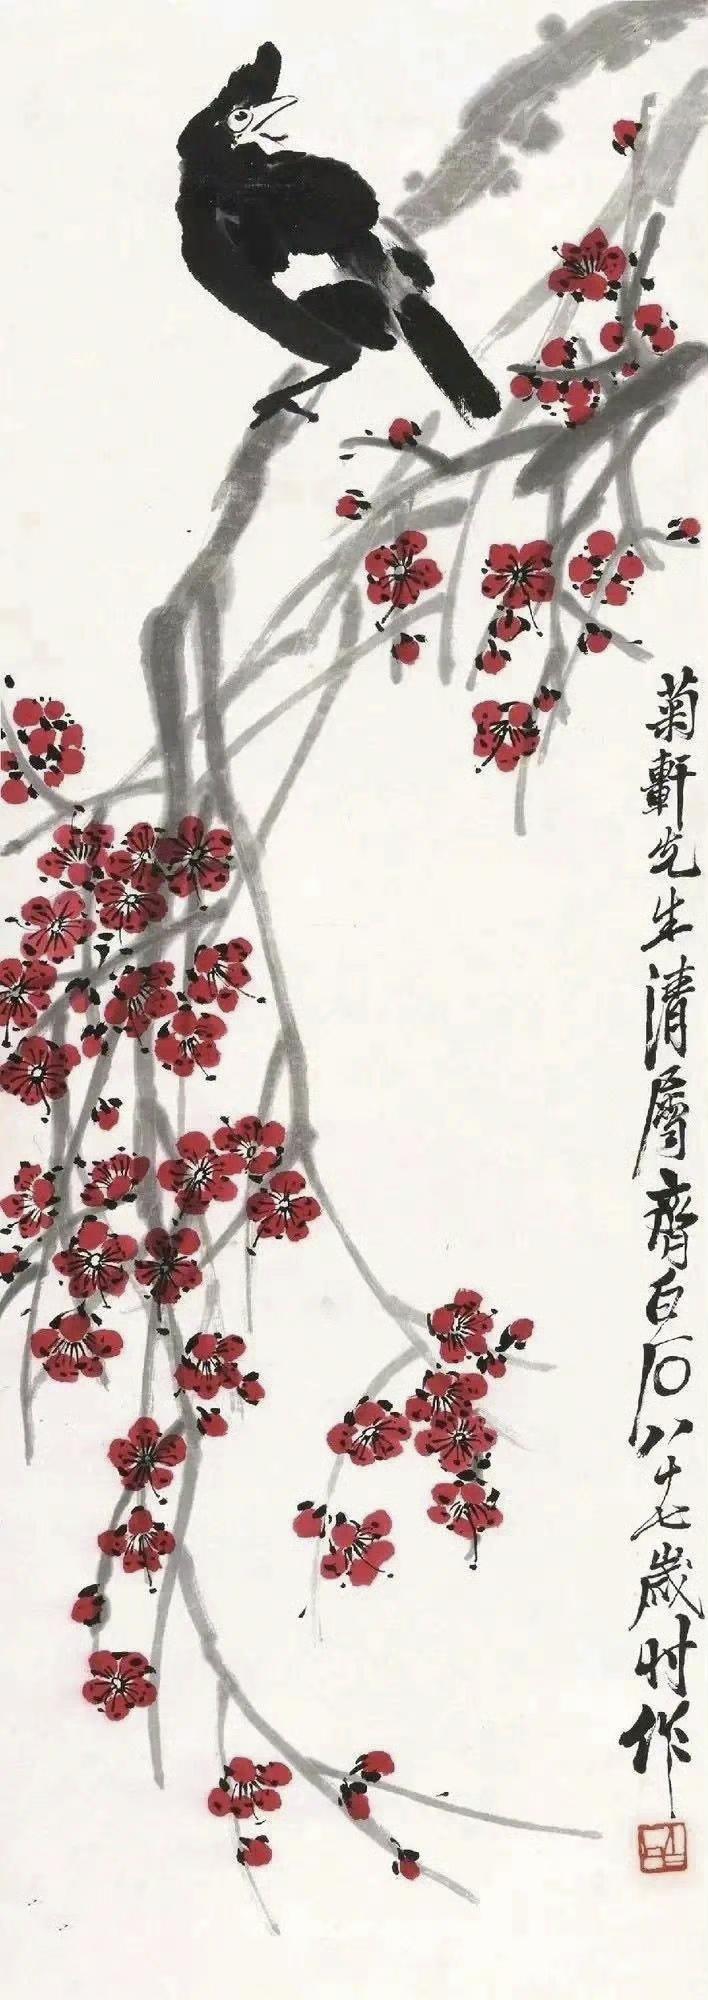 菊軒先生清屬齊白石八十七歲时作